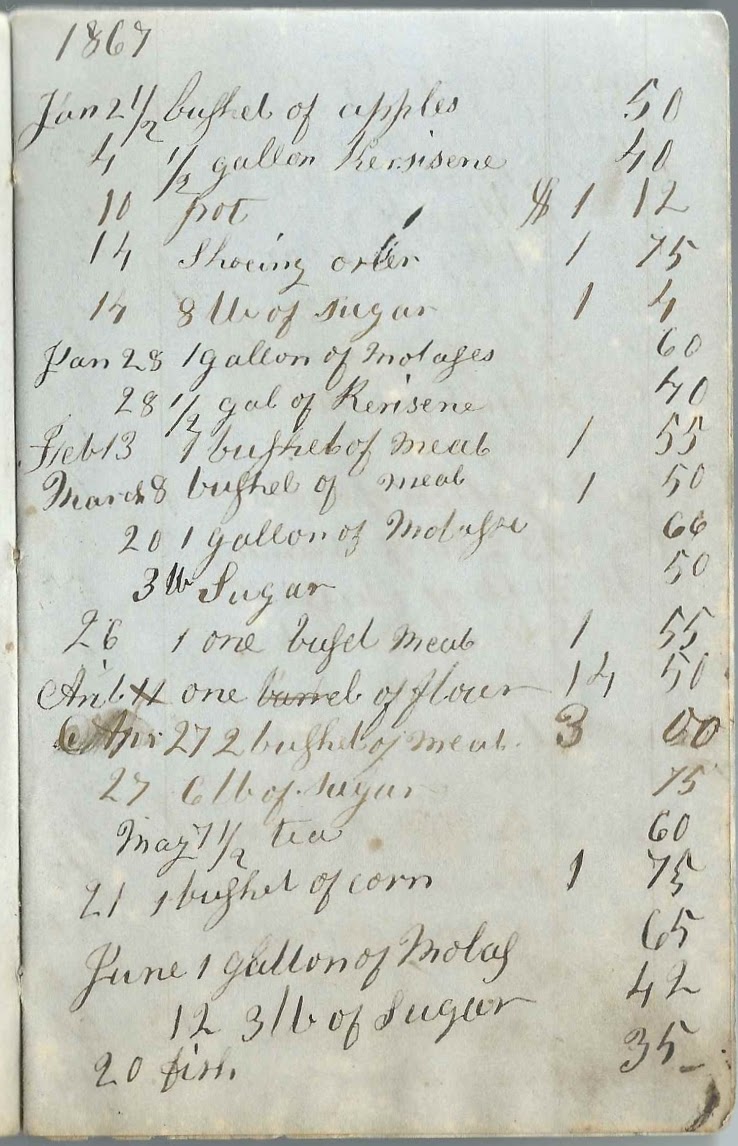 1867
Jan 2 1/2 bushel of apples 50
4 1/2 gallon Kersisene 40
10 pot $ 1 12
14 Shoeing oxen 1 75
14 8 lb of sugar 1 4
Jan 28 1 gallon of Molases 60
28 1/2 gal of Kerisene 40
Feb 13 1 bushel of meal 1 55
March 8 bushel of meal 1 50
20 1 gallon of Molasse 66
3 lb Sugar 50
26 1 one bushel meal 1 55
11 one barrel of flour 14 50
Apr 27 2 bushel of meal 3 00
27 6 lb of sugar 75
May 7 1/2 tea 60
21 1 bushel of corn 1 75
June 1 gallon of Molas 65
12 3 lb of Sugar 42
20 fish 35